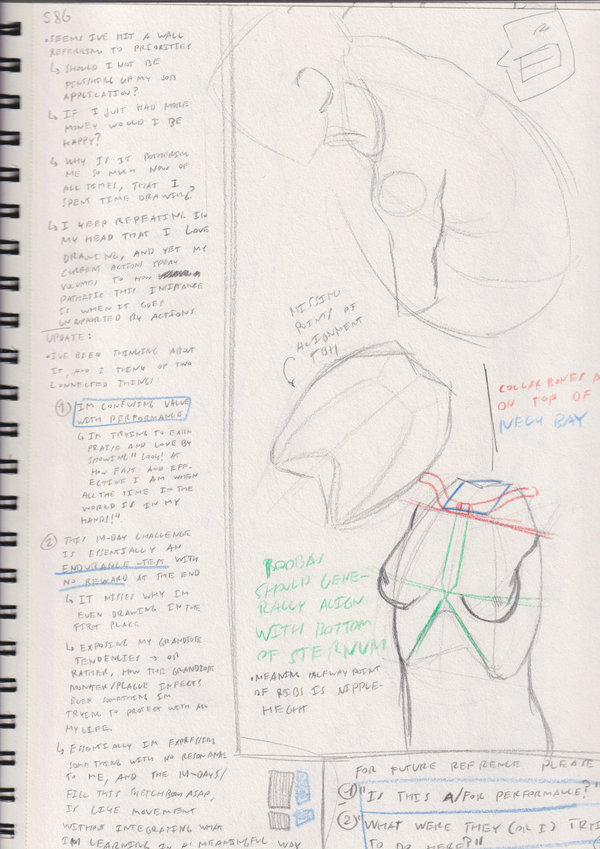 586
•SEEMS IVE HIT A WALL
REFERRING TO PRIORITIES
↳ SHOULD I NOT BE
FINISHING UP MY JOB
APPLICATION?
↳ IF I JUST HAD MORE
MONEY WOULD I BE
HAPPY?
↳ WHY IS IT BOTHERING
ME SO MUCH NOW OF
ALL TIMES, THAT I
SPENT TIME DRAWING?
↳ I KEEP REPEATING IN
MY HEAD THAT I LOVE
DRAWING, AND YET MY
CURRENT ACTIONS SPEAK
VOLUMES TO HOW
PATHETIC THIS INSTANCE
IS WHEN IT GOES
UNSUPPORTED BY ACTIONS.
UPDATE:
•IVE BEEN THINKING ABOUT
IT, AND I THINK OF TWO
CONNECTED THINGS
① IM CONFUSING VALUE
WITH PERFORMANCE
↳ IM TRYING TO EARN
PRAISE AND LOVE BY
SHOWING "LOOK! AT
HOW FAST AND EFF-
ECTIVE I AM WHEN
ALL THE TIME IN THE
WORLD IS IN MY
HANDS!".
② THIS 14-DAY CHALLENGE
IS ESSENTIALLY AN
ENDURANCE-TEST WITH
NO REWARD AT THE END
↳ IT MISSES WHY IM
EVEN DRAWING IN THE
FIRST PLACE
↳ EXPOSING MY GRANDIOSE
TENDENCIES → OR
RATHER, HOW THE GRANDIOSE
MONSTER/PLAGUE INFECTS
EVEN SOMETHING IM
TRYING TO PROTECT WITH ALL
MY LIFE.
↳ ESSENTIALLY IM EXPRESSING
SOMETHING WITH NO RESONANCE
TO ME, AND THE 14-DAYS/
FILL THIS SKETCHBOOK ASAP,
IS LIKE MOVEMENT
WITHOUT INTEGRATING WHAT
IM LEARNING IN A MEANINGFUL WAY
MISSING
POINTS OF
ALIGNMENT
TBH
COLLAR BONES
ON TOP OF
NECK BAY
BOOBAS
SHOULD GENE-
RALLY ALIGN
WITH BOTTOM
OF STERNUM
•MEANING HALFWAY POINT
OF RIBS IS NIPPLE-
HEIGHT
FOR FUTURE REFRENCE PLEASE
① "IS THIS A/FOR PERFORMANCE?"
② "WHAT WERE THEY (OR I) TRYI
TO DO HERE?"